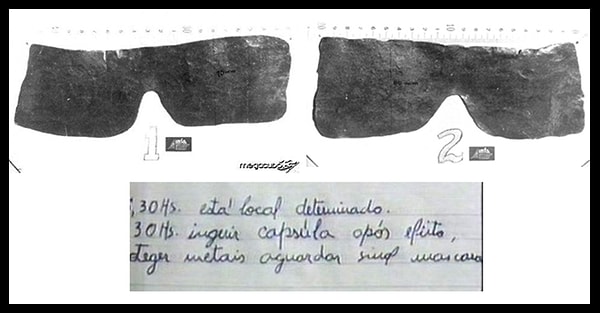 1
2
,30 Hs. está local determinado.
30 Hs. inguir capsúla após efeito,
oteger metais aguardar sinal mascara